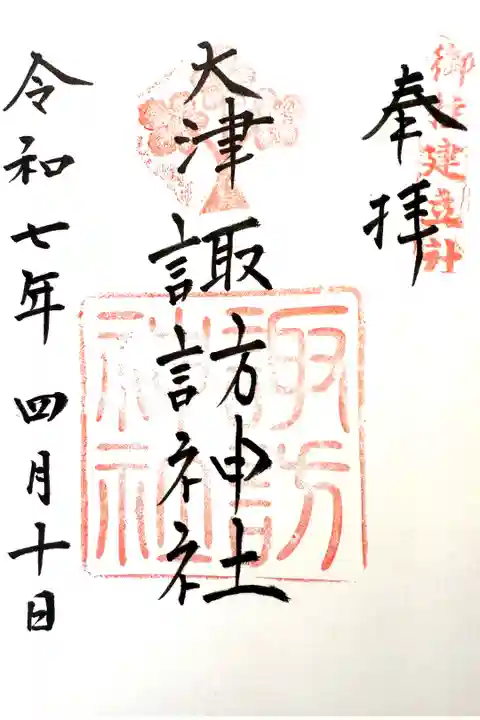 御柱建立社
奉拝
大津
諏訪神社
諏訪
神社
令和七年 四月十日